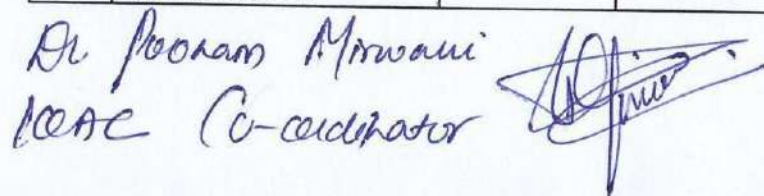 Dr Poonam Mirwani
IQAC Co-ordinator